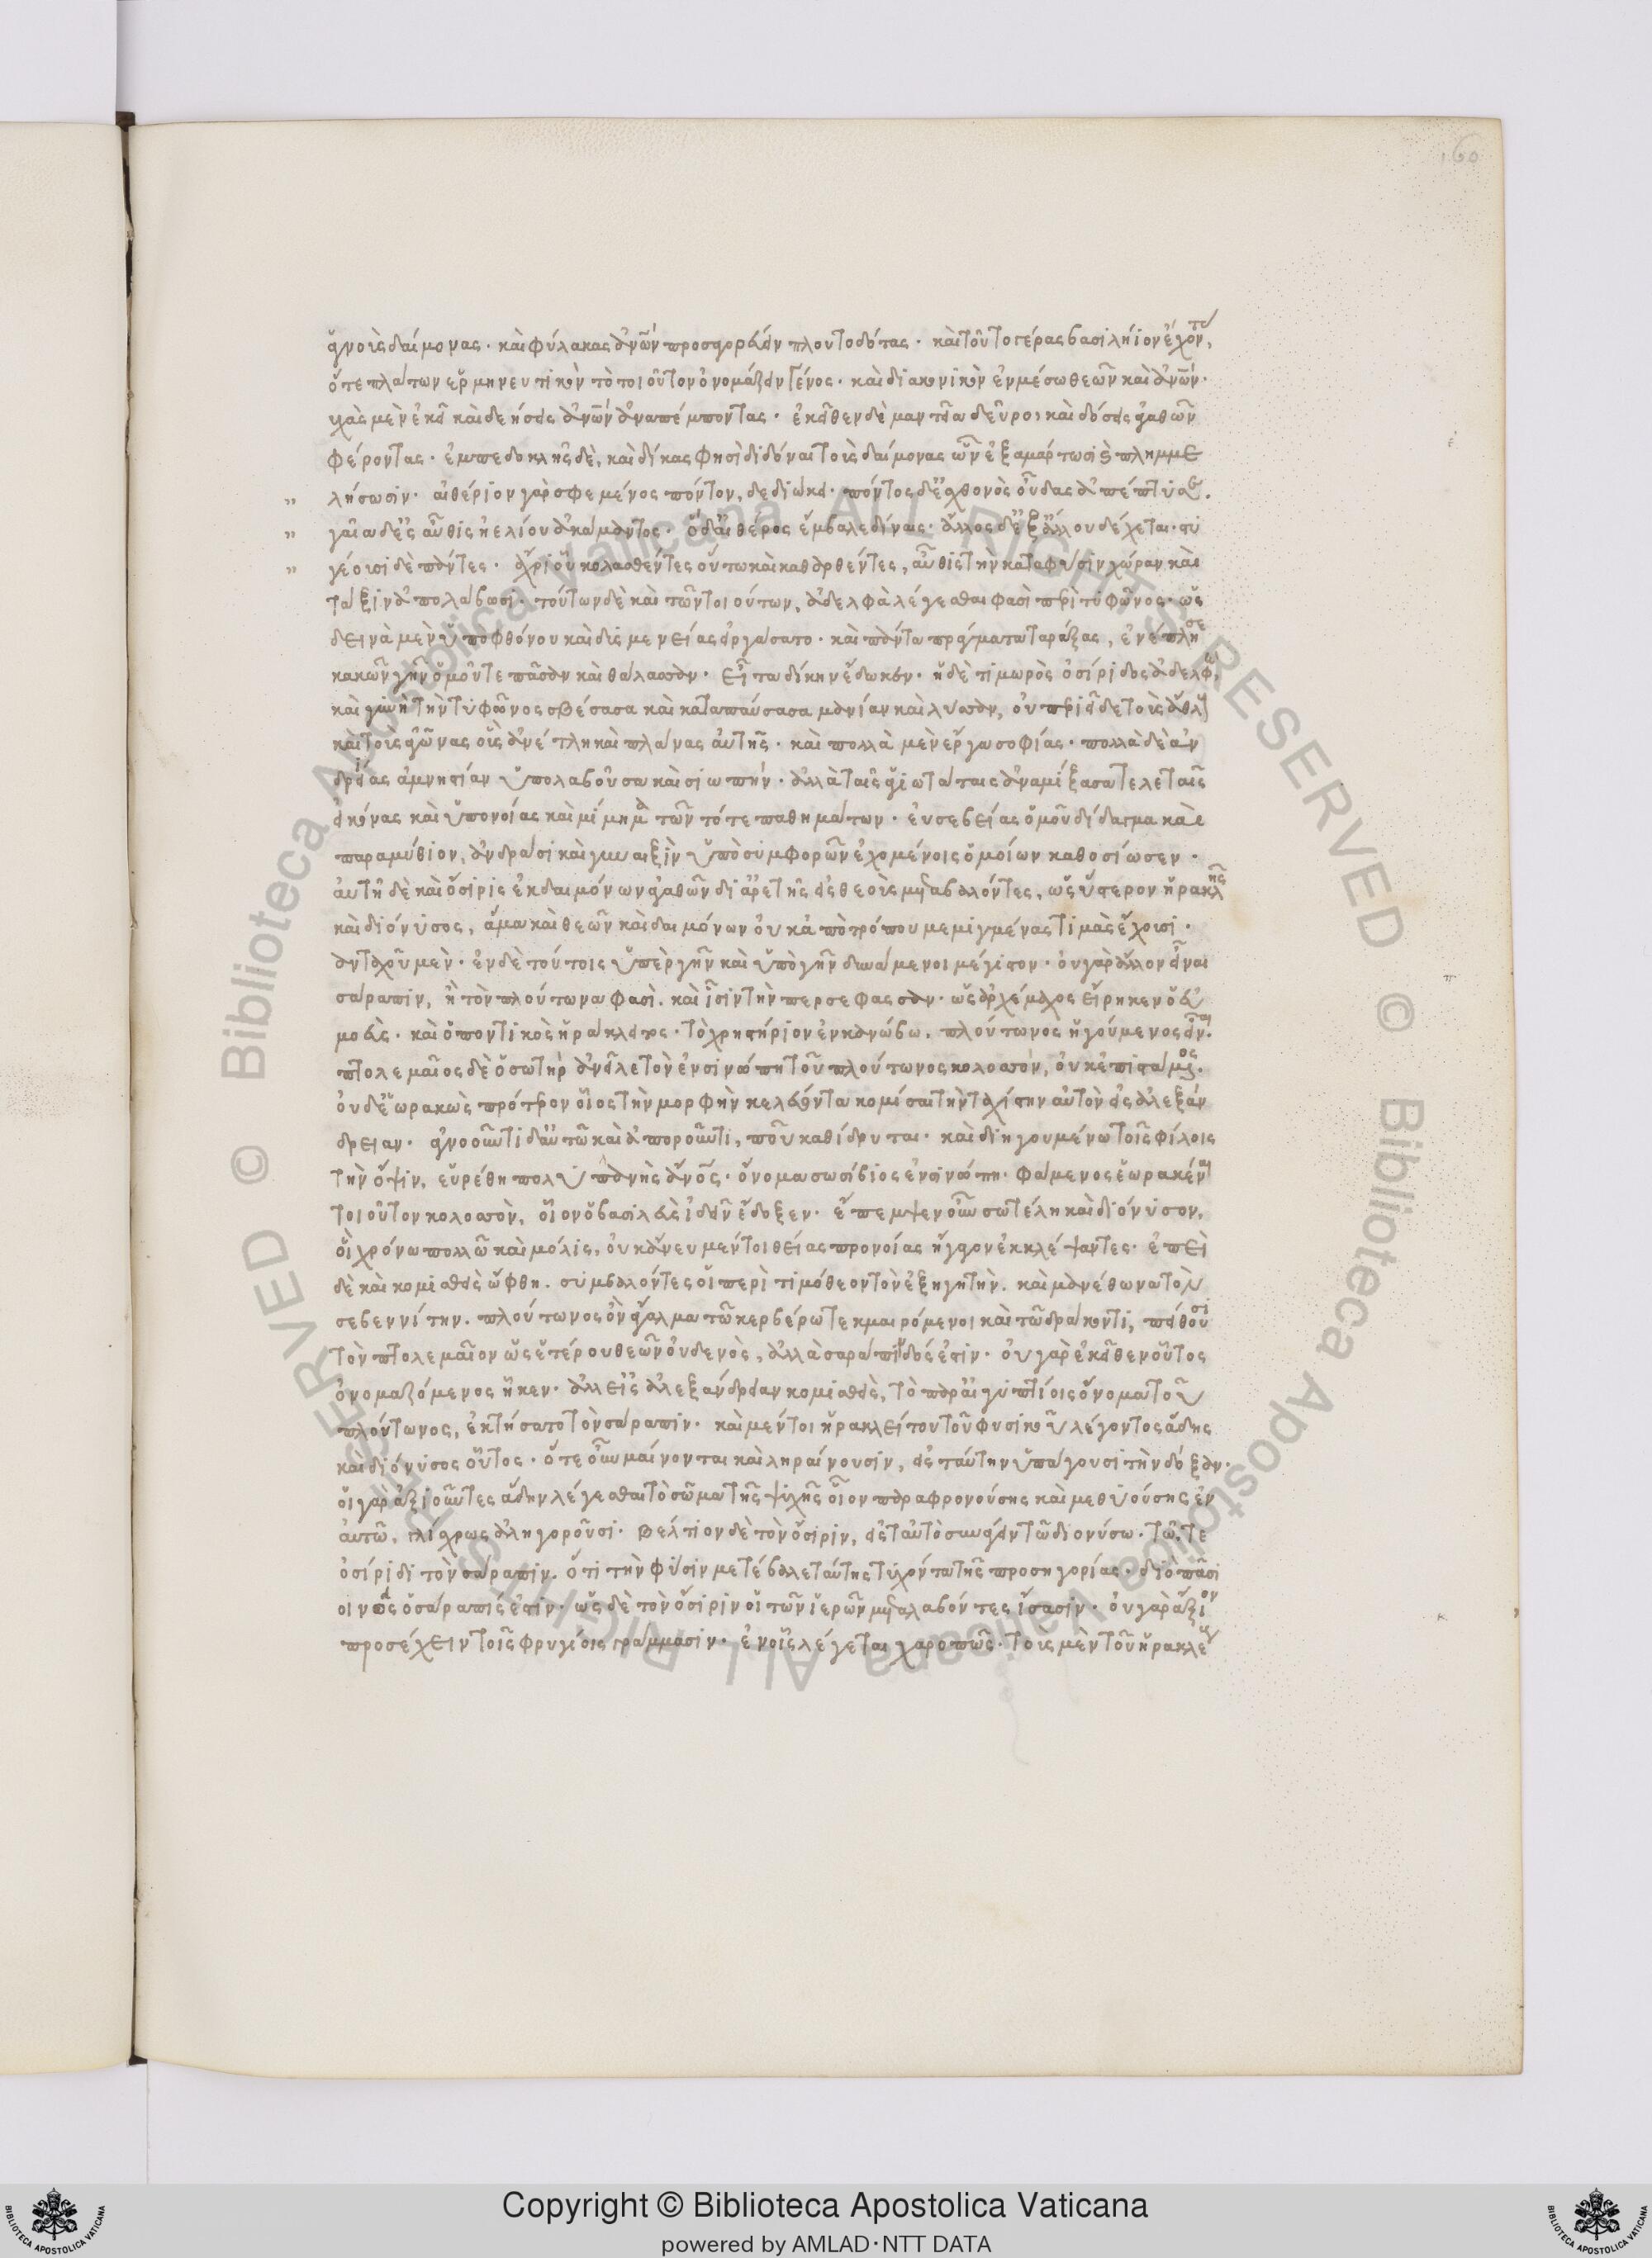 160
ἁγνοὺς δαίμονας· καὶ φύλακας ἀνῶν προσαγορεύειν πλουτοδότας· καὶ τοῦτο γέρας βασιλήϊον ἔχοντας,
ὅτε πλάτων ἑρμηνευτικὸν τὸ τοιοῦτον ὀνομάζειν γένος· καὶ διακονικὸν ἐν μέσω θεῶν καὶ ἀνῶν·
εὐχὰς μὲν ἐκεῖ καὶ δεήσεις ἀνῶν ἀναπέμποντας· ἐκεῖθεν δὲ μαντεῖα δεῦρο καὶ δόσεις ἀγαθῶν
φέροντας· ἐμπεδοκλῆς δὲ, καὶ δίκας φησὶ διδόναι τοὺς δαίμονας ὧν ἐξαμάρτωσι καὶ πλημμε
λήσωσιν· αἰθέριον γὰρ σφε μένος πόντον, δε διώκει· πόντος δ' ἐς χθονὸς οὖδας ἀπέπτυσε.
γαῖα δ' ἐς αὖθις ἠελίου ἀκάμαντος· ὁ δ' αἰθέρος ἔμβαλε δίναις· ἄλλος δ' ἐξ ἄλλου δέχεται· στυ
γέουσι δὲ πάντες· ἄχρι οὗ κολασθέντες οὕτω καὶ καθαρθέντες, αὖθις τὴν κατὰ φύσιν χώραν καὶ
τάξιν ἀπολάβωσι· τούτων δὲ καὶ τῶν τοιούτων, ἀδελφὰ λέγεσθαι φασὶ περὶ τυφῶνος· ὡς
δεινὰ μὲν ὑπὸ φθόνου καὶ δυσμενείας εἰργάσατο· καὶ πάντα πράγματα ταράξας, ἐνέπλησε
κακῶν γῆν ὁμοῦ τε πᾶσαν καὶ θάλασσαν· εἶτα δίκην ἔδωκεν· ἡ δὲ τιμωρὸς ὀσίριδος ἀδελφὴ,
καὶ γυνὴ τὴν τυφῶνος σβέσασα καὶ καταπαύσασα μανίαν καὶ λύσσαν, οὐ περιεῖδε τοὺς ἄθλους
καὶ τοὺς ἀγῶνας οὓς ἀνέτλη καὶ πλάνας αὐτῆς· καὶ πολλὰ μὲν ἔργα σοφίας· πολλὰ δὲ ἀν
δρείας ἀμνηστίαν ὑπολαβοῦσα καὶ σιωπήν· ἀλλὰ ταῖς ἁγιωτάταις ἀναμίξασα τελεταῖς
εἰκόνας καὶ ὑπονοίας καὶ μίμημα τῶν τότε παθημάτων· εὐσεβείας ὁμοῦ δίδαγμα καὶ
παραμύθιον, ἀνδράσι καὶ γυναιξὶν ὑπὸ συμφορῶν ἐχομένοις ὁμοίων καθοσίωσεν·
αὐτὴ δὲ καὶ ὄσιρις ἐκ δαιμόνων ἀγαθῶν δι' ἀρετῆς εἰς θεοὺς μεταβαλόντες, ὡς ὕστερον ἡρακλῆς
καὶ διόνυσος, ἅμα καὶ θεῶν καὶ δαιμόνων οὐκ ἀπὸ τρόπου μεμιγμένας τιμὰς ἔχουσι·
πανταχοῦ μὲν· ἐν δὲ τούτοις ὑπὲρ γῆν καὶ ὑπὸ γῆν δυνάμενοι μέγιστον· οὐ γὰρ ἄλλον εἶναι
σάραπιν, ἢ τὸν πλούτωνα φασὶ. καὶ ἶσιν τὴν περσεφασσαν· ὡς ἀρχέμαχος εἴρηκεν ὁ εὐ
βοεὺς· καὶ ὁ ποντικὸς ἡρακλείτος· τὸ χρηστήριον ἐν κανώβω. πλούτωνος ἡγούμενος εἶναι.
πτολεμαῖος δὲ ὁ σωτὴρ ἀνεῖλε τὸν ἐν σινώπη τοῦ πλούτωνος κολοσσόν, οὐκ ἐπιστάμενος.
οὐδὲ ἑωρακὼς πρότερον οἷος τὴν μορφὴν κελεύοντα κομίσαι τὴν ταχίστην αὐτὸν εἰς ἀλεξάν
δρειαν. ἀγνοοῦντι δ' αὐτῶ καὶ ἀποροῦντι, ποῦ καθίδρυται· καὶ διηγουμένω τοῖς φίλοις
τὴν ὄψιν, εὑρέθη πολυπλανὴς ἄνος· ὄνομα σωσίβιος ἐν σινώπη· φάμενος ἑωρακέναι
τοιοῦτον κολοσσὸν, οἷον ὁ βασιλεὺς ἰδεῖν ἔδοξεν· ἔπεμψεν οὖν σωτέλη καὶ διόνυσον,
οἳ χρόνω πολλῶ καὶ μόλις, οὐκ ἄνευ μέντοι θείας προνοίας ἤγαγον ἐκκλέψαντες· ἐπεὶ
δὲ καὶ κομισθεὶς ὤφθη. συμβαλόντες οἱ περὶ τιμόθεον τὸν ἐξηγητὴν. καὶ μανέθωνα τὸν
σεβεννίτην. πλούτωνος ὂν ἄγαλμα τῶ κερβέρω τεκμαιρόμενοι καὶ τῶ δράκοντι, πείθουσι
τὸν πτολεμαῖον ὡς ἑτέρου θεῶν οὐδενὸς, ἀλλὰ σαράπιδός ἐστιν· οὐ γὰρ ἐκεῖθεν οὕτως
ὀνομαζόμενος ἧκεν· ἀλλ' εἰς ἀλεξάνδρειαν κομισθεὶς, τὸ παρ' αἰγυπτίοις ὄνομα τοῦ
πλούτωνος, ἐκτήσατο τὸν σάραπιν· καὶ μέντοι ἡρακλείτου τοῦ φυσικοῦ λέγοντος ἅδης
καὶ διόνυσος οὗτος· ὅτε οὖν μαίνονται καὶ ληραίνουσιν, εἰς ταύτην ὑπάγουσι τὴν δόξαν·
οἱ γὰρ ἀξιοῦντες ἅδην λέγεσθαι τὸ σῶμα τῆς ψυχῆς οἷον παραφρονούσης καὶ μεθυούσης ἐν
αὐτῶ, γλίχρως ἀλληγοροῦσι· βέλτιον δὲ τὸν ὄσιριν, εἰς ταὐτὸ συνάγειν τῶ διονύσω· τῶ, τε
ὀσίριδι τὸν σάραπιν. ὅτι τὴν φύσιν μετέβαλε ταύτης τυχόντα τῆς προσηγορίας· διὸ πᾶσι
κοινὸς ὁ σάραπίς ἐστιν· ὡς δὲ τὸν ὄσιριν οἱ τῶν ἱερῶν μεταλαβόντες ἴσασιν· οὐ γὰρ ἄξιον
προσέχειν τοῖς φρυγίοις γράμμασιν· ἐν οἷς λέγεται χαροπῶς· τοὺς μὲν τοῦ ἡρακλέους
Copyright © Biblioteca Apostolica Vaticana
powered by AMLAD·NTT DATA